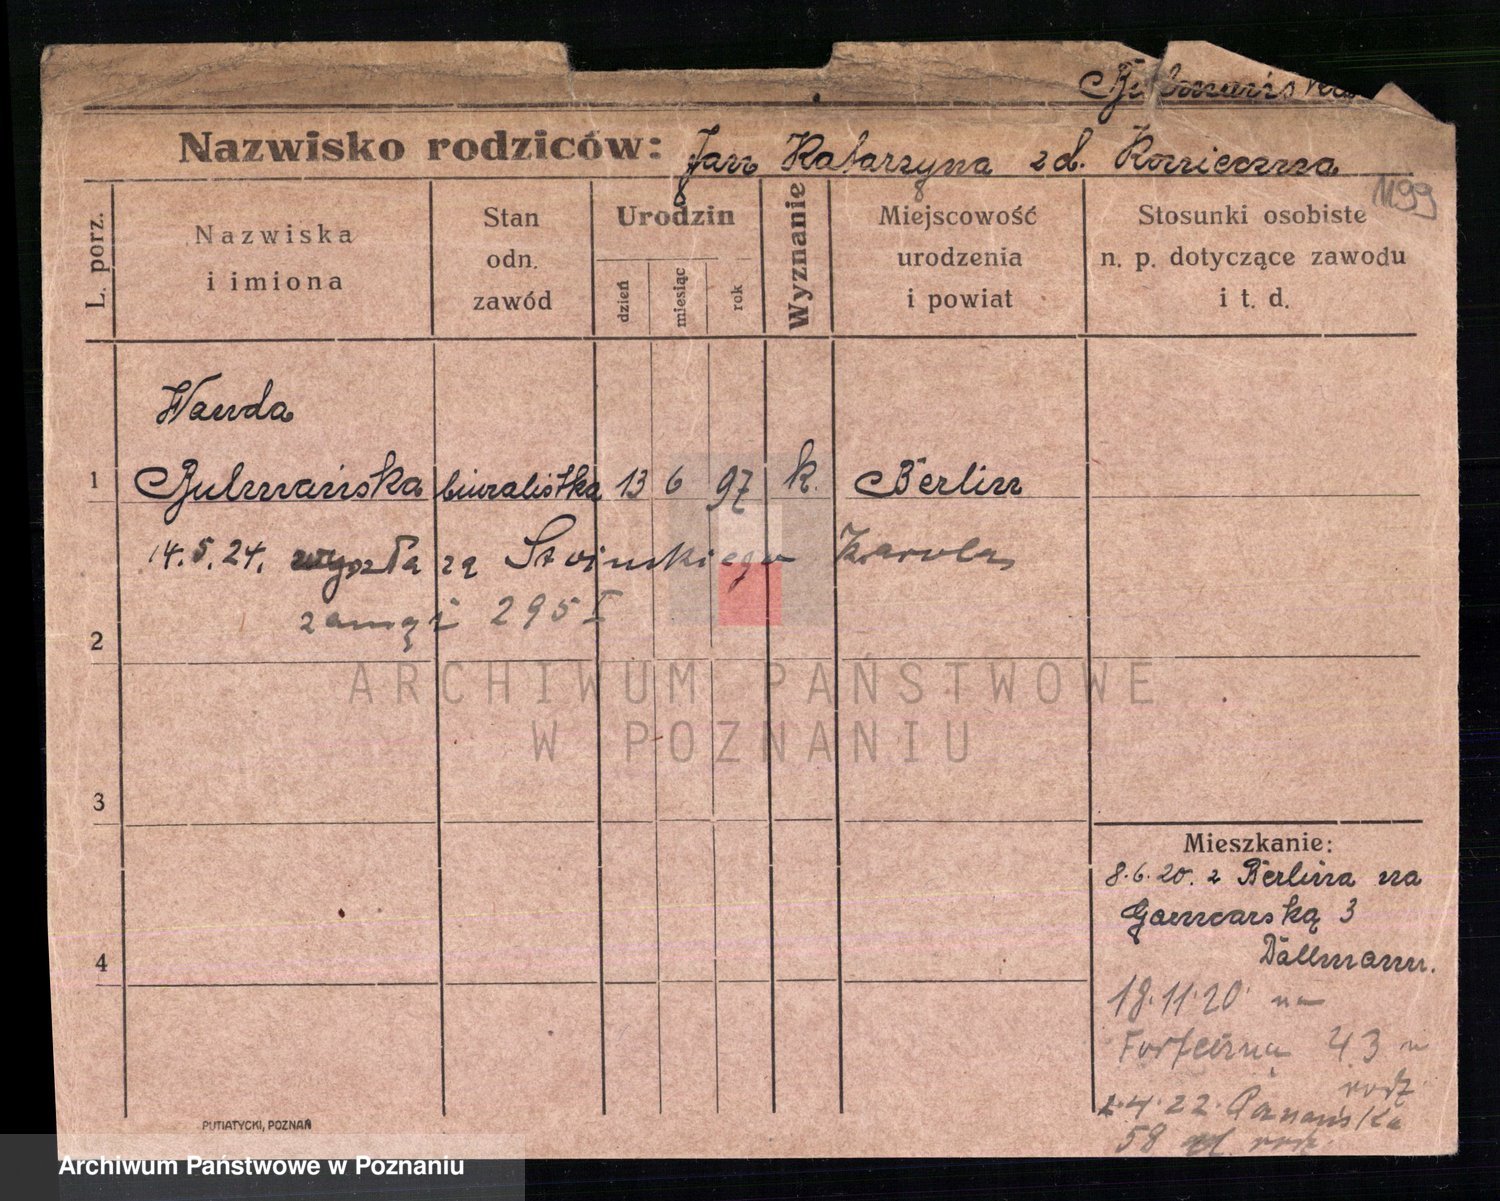 Nazwisko rodziców: Jan Katarzyna zd. Konieczna
1199
L. porz.
Nazwiska
i imiona
Stan
odn.
zawód
Urodzin
dzień
miesiąc
rok
Wyznanie
Miejscowość
urodzenia
i powiat
Stosunki osobiste
n. p. dotyczące zawodu
i t. d.
Wanda
1 Bulmańska biuralistka 13 6 97 k. Berlin
14.5.24. wyszła za Stoinskiego Karola
zamąż 295 I
2
ARCHIWUM PAŃSTWOWE
W POZNANIU
3
Mieszkanie:
8.6.20. z Berlina na
Garncarską 3
Dallmann.
4
19.11.20 na
Forteczną 43
rodz
2.4.22. Poznańska
58
PUTIATYCKI, POZNAŃ
Archiwum Państwowe w Poznaniu